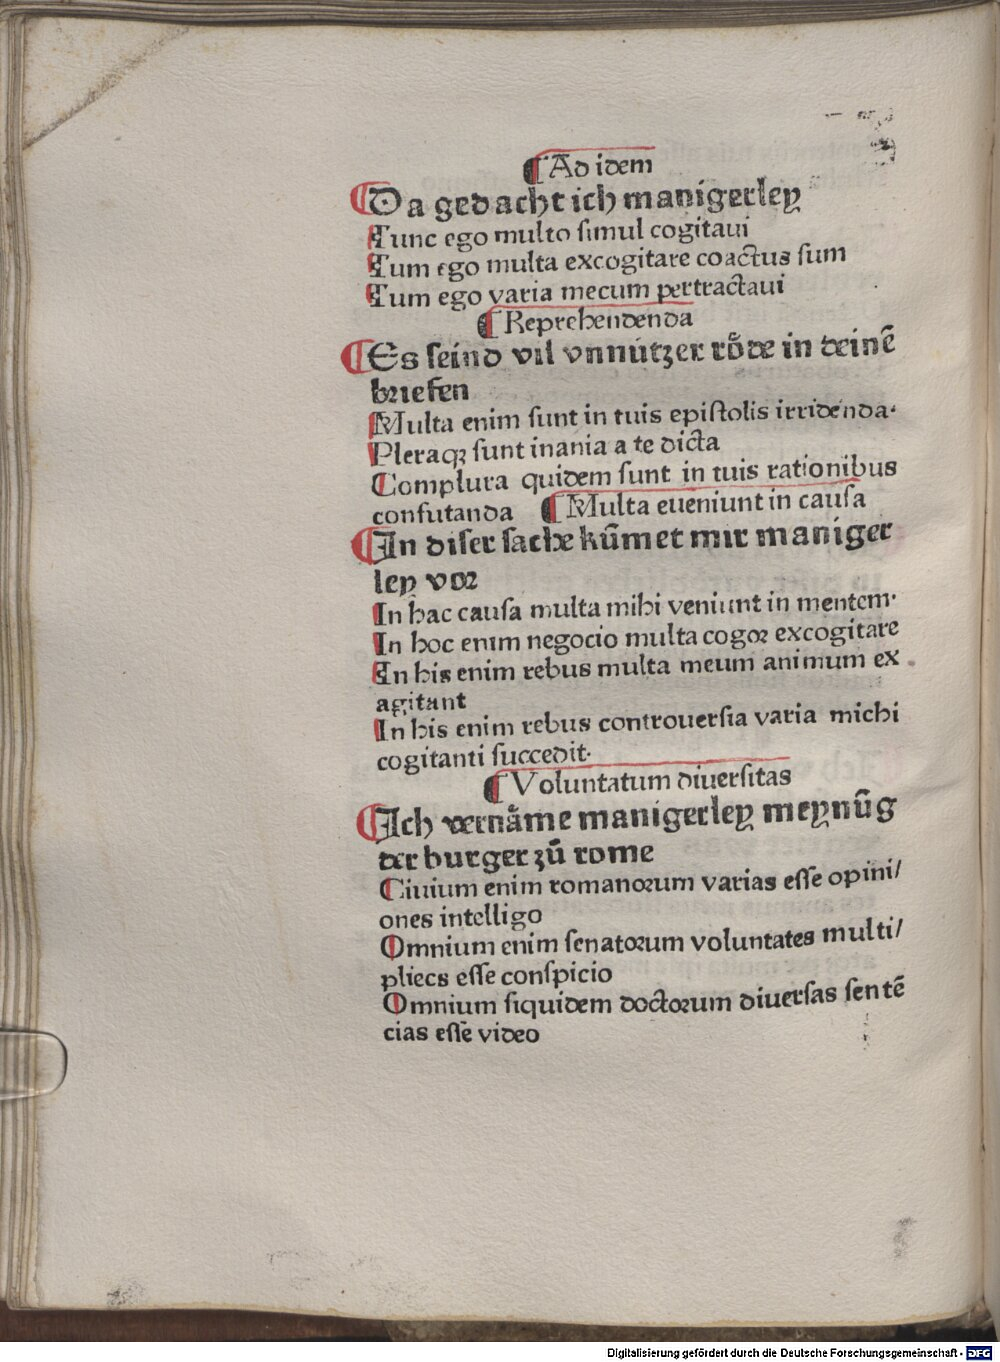 ¶ Ad idem
Da gedacht ich manigerley
Tunc ego multo simul cogitaui
Tum ego multa excogitare coactus sum
Tum ego varia mecum pertractaui
¶ Reprehendenda
Es seind vil vnnútzer röde in deinē
briefen
Multa enim sunt in tuis epistolis irridenda·
Pleraqꝫ sunt inania a te dicta
Complura quidem sunt in tuis rationibus
confutanda ¶ Multa eueniunt in causa
In diser sache kūmet mir maniger
ley vor
In hac causa multa mihi veniunt in mentem·
In hoc enim negocio multa cogor excogitare
In his enim rebus multa meum animum ex
agitant
In his enim rebus controuersia varia michi
cogitanti succedit·
¶ Voluntatum diuersitas
Ich vernäme manigerley meynūg
der burger zū rome
Ciuium enim romanorum varias esse opini/
ones intelligo
Omnium enim senatorum voluntates multi/
pliecs esse conspicio
Omnium siquidem doctorum diuersas sentē
cias esse video
Digitalisierung gefördert durch die Deutsche Forschungsgemeinschaft - DFG